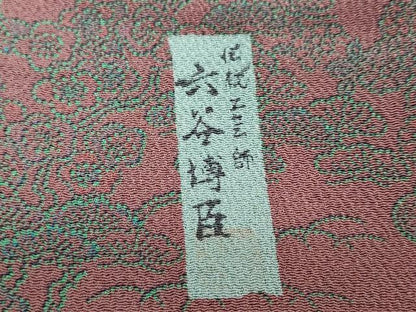 伝統工芸師
六谷博臣